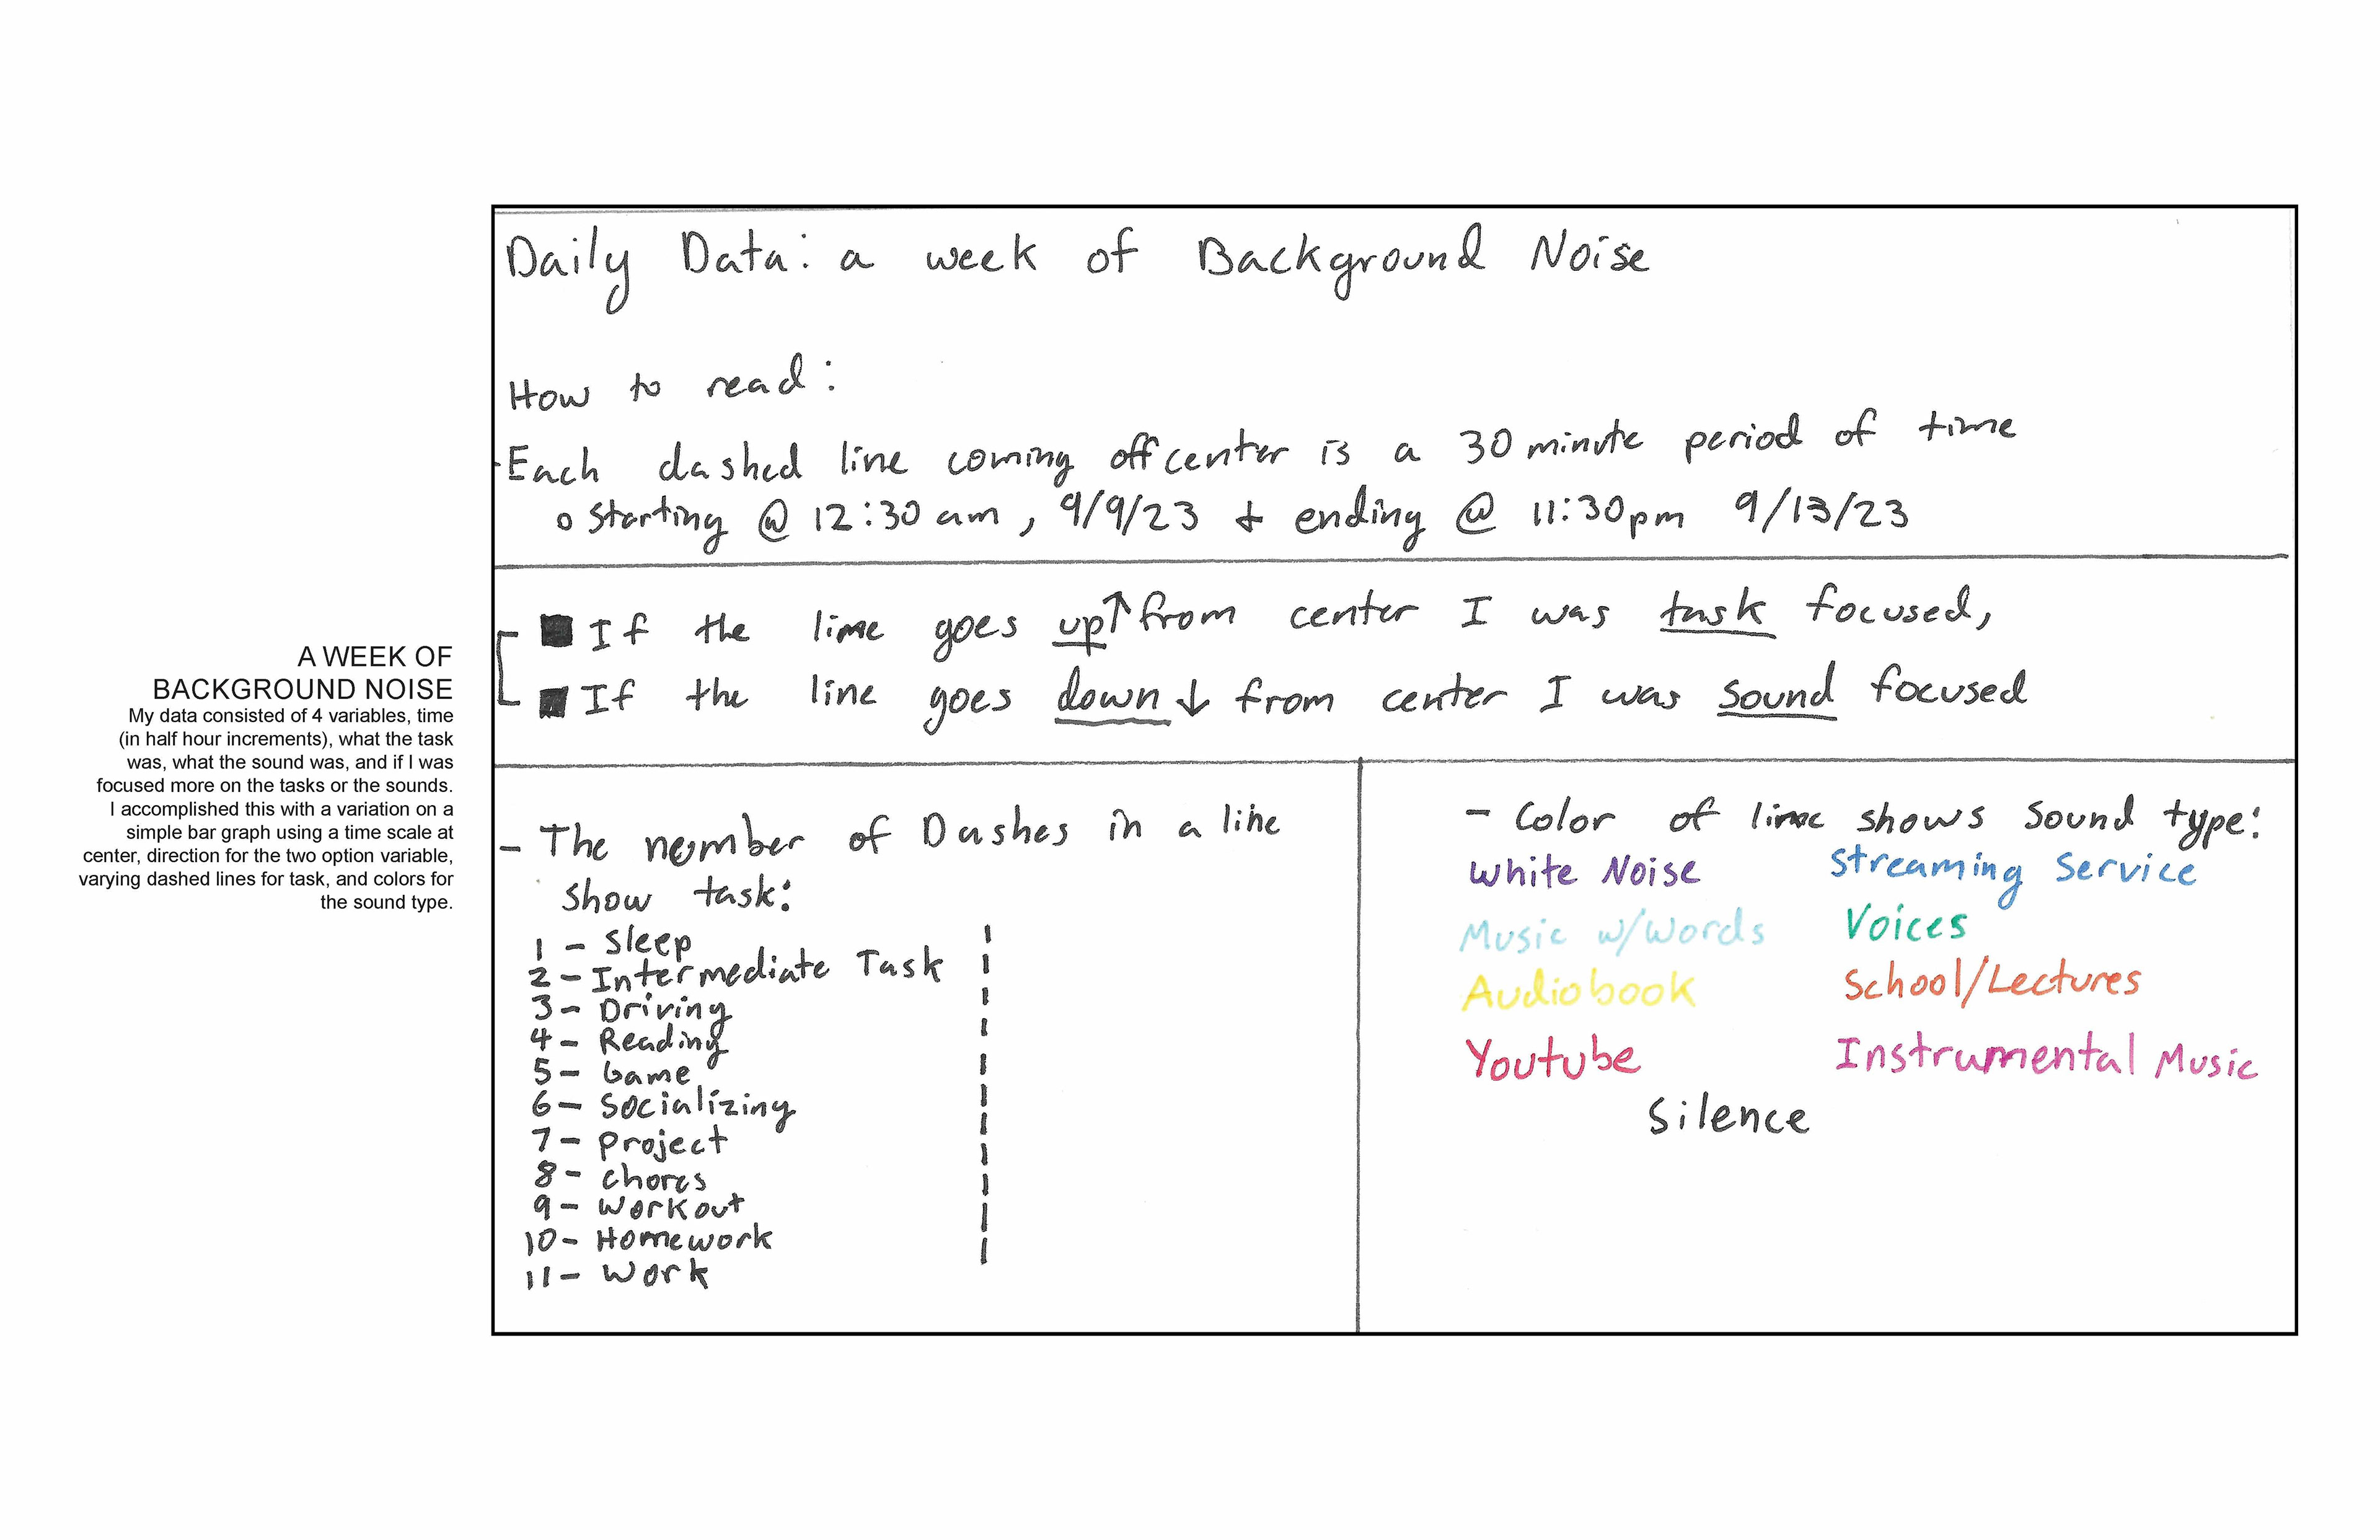 A WEEK OF
BACKGROUND NOISE
My data consisted of 4 variables, time
(in half hour increments), what the task
was, what the sound was, and if I was
focused more on the tasks or the sounds.
I accomplished this with a variation on a
simple bar graph using a time scale at
center, direction for the two option variable,
varying dashed lines for task, and colors for
the sound type.
Daily Data: a week of Background Noise
How to read:
-Each dashed line coming off center is a 30 minute period of time
o starting @ 12:30 am, 9/9/23 + ending @ 11:30pm 9/13/23
■ If the line goes up↑ from center I was task focused,
■ If the line goes down ↓ from center I was sound focused
- The number of Dashes in a line
show task:
1 - Sleep
2 - Intermediate Task
3 - Driving
4 - Reading
5 - Game
6 - Socializing
7 - Project
8 - chores
9 - Workout
10 - Homework
11 - Work
- Color of line shows sound type:
White Noise Streaming Service
Music w/words Voices
Audiobook School/Lectures
Youtube Instrumental Music
Silence